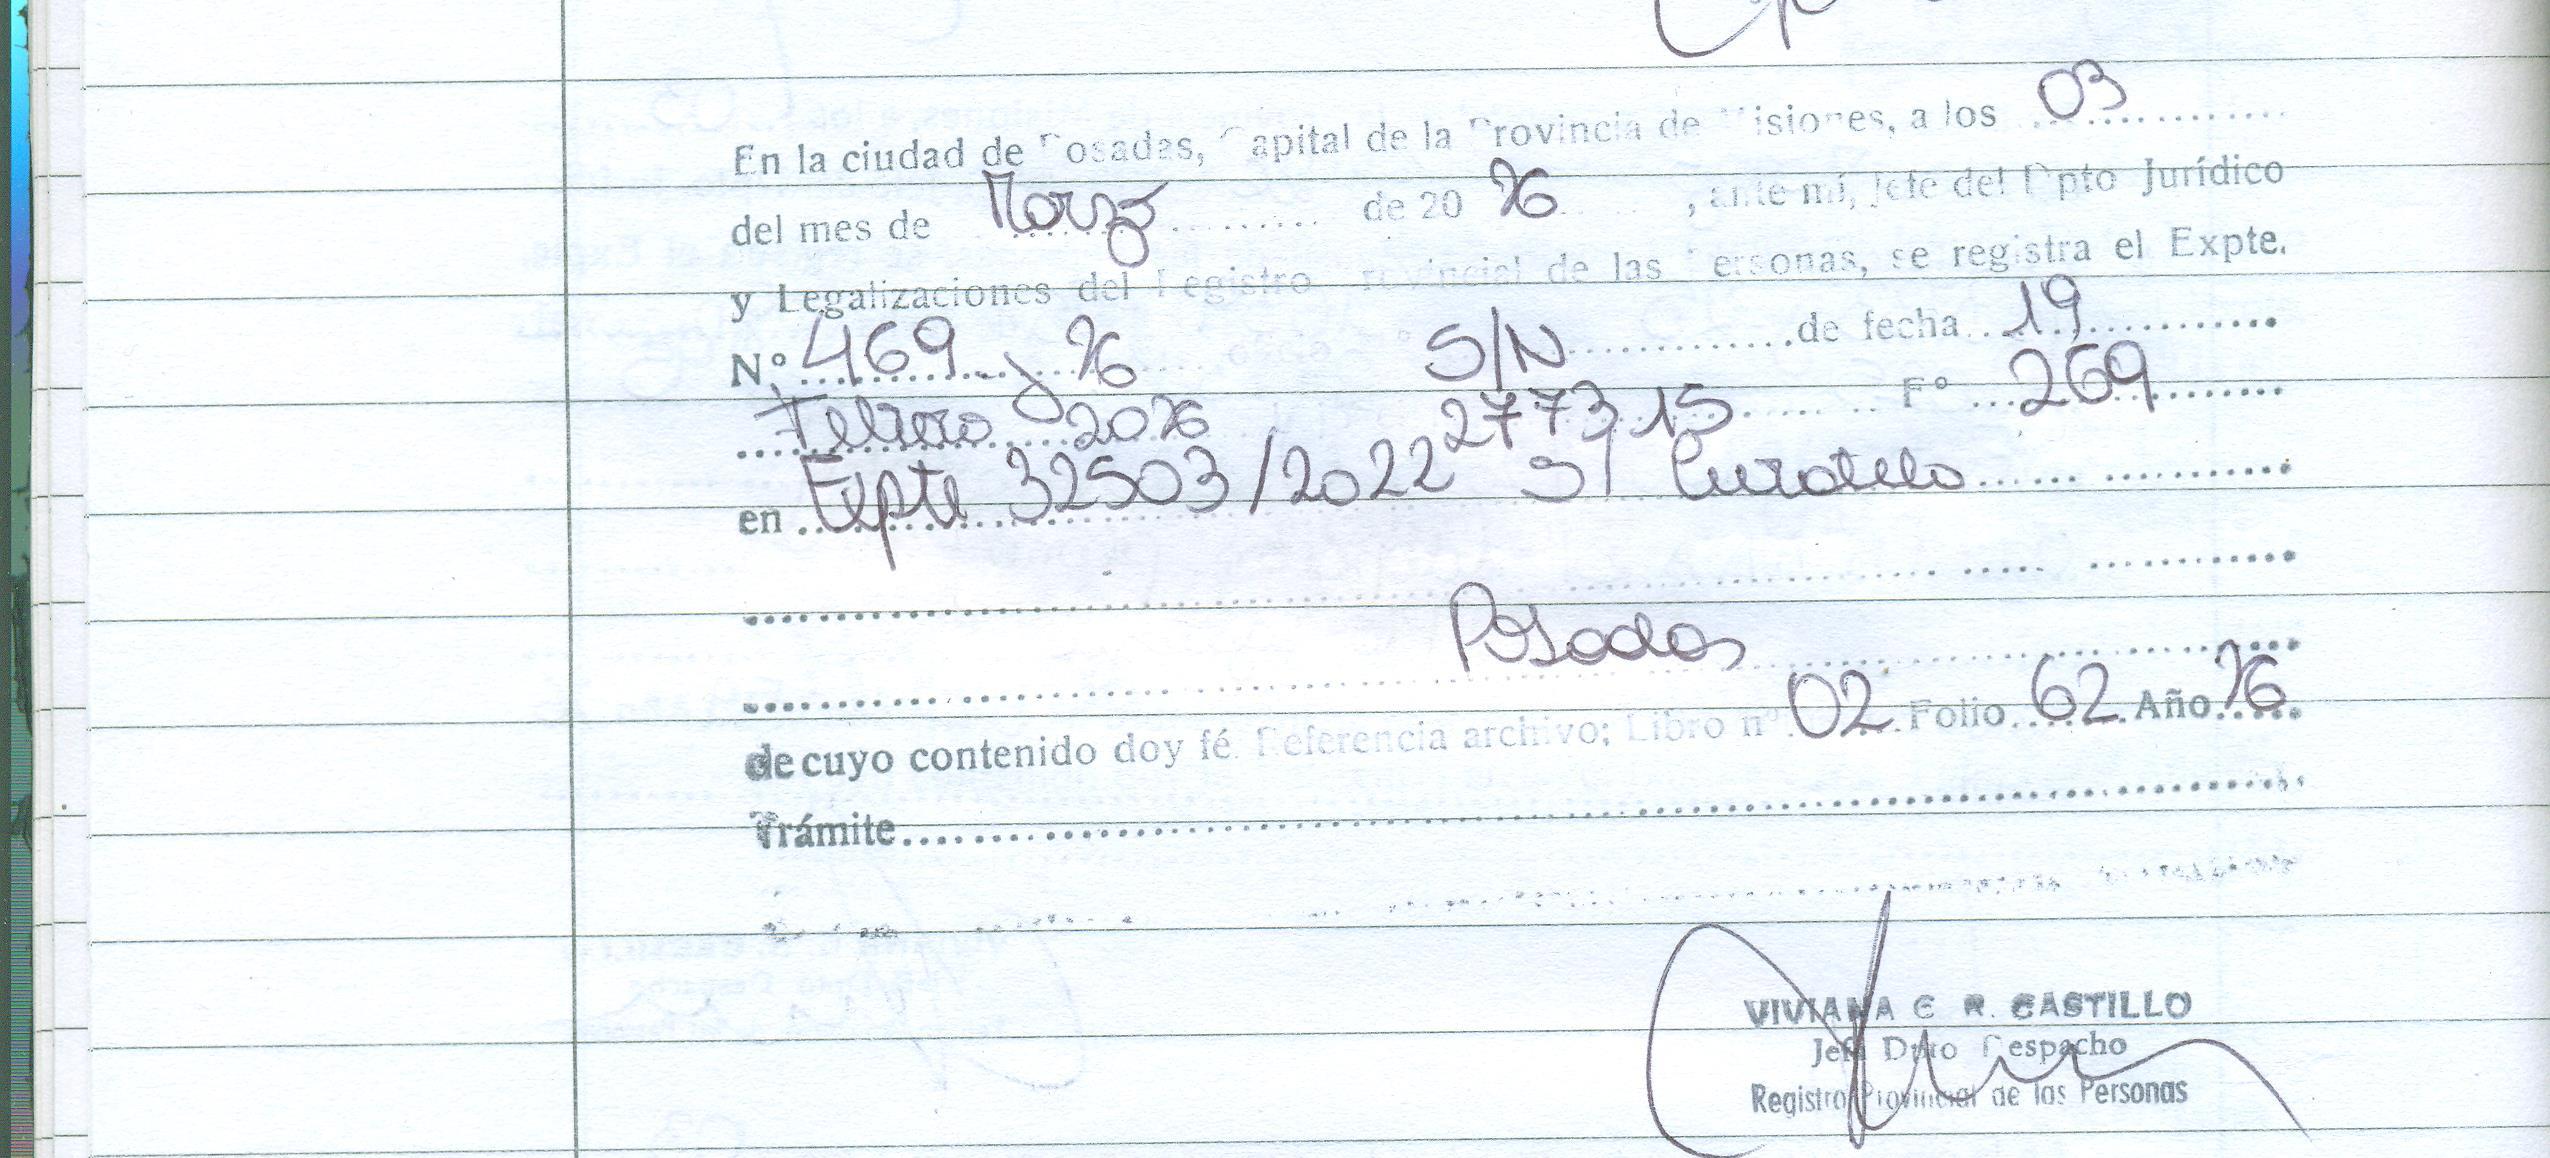 En la ciudad de Posadas, Capital de la Provincia de Misiones, a los 03
del mes de Marzo de 20 26, ante mí, Jefe del Dpto Jurídico
y Legalizaciones del Registro Provincial de las Personas, se registra el Expte.
Nº 469 - 26 S/N de fecha 19
Febrero 2026 277315 Fº 269
en Expte 32503/2022 S/ Curatela
Posadas
de cuyo contenido doy fé. Referencia archivo; Libro nº 02 Folio 62 Año 26
Trámite
VIVIANA E R. CASTILLO
Jefa Dpto Despacho
Registro Provincial de las Personas